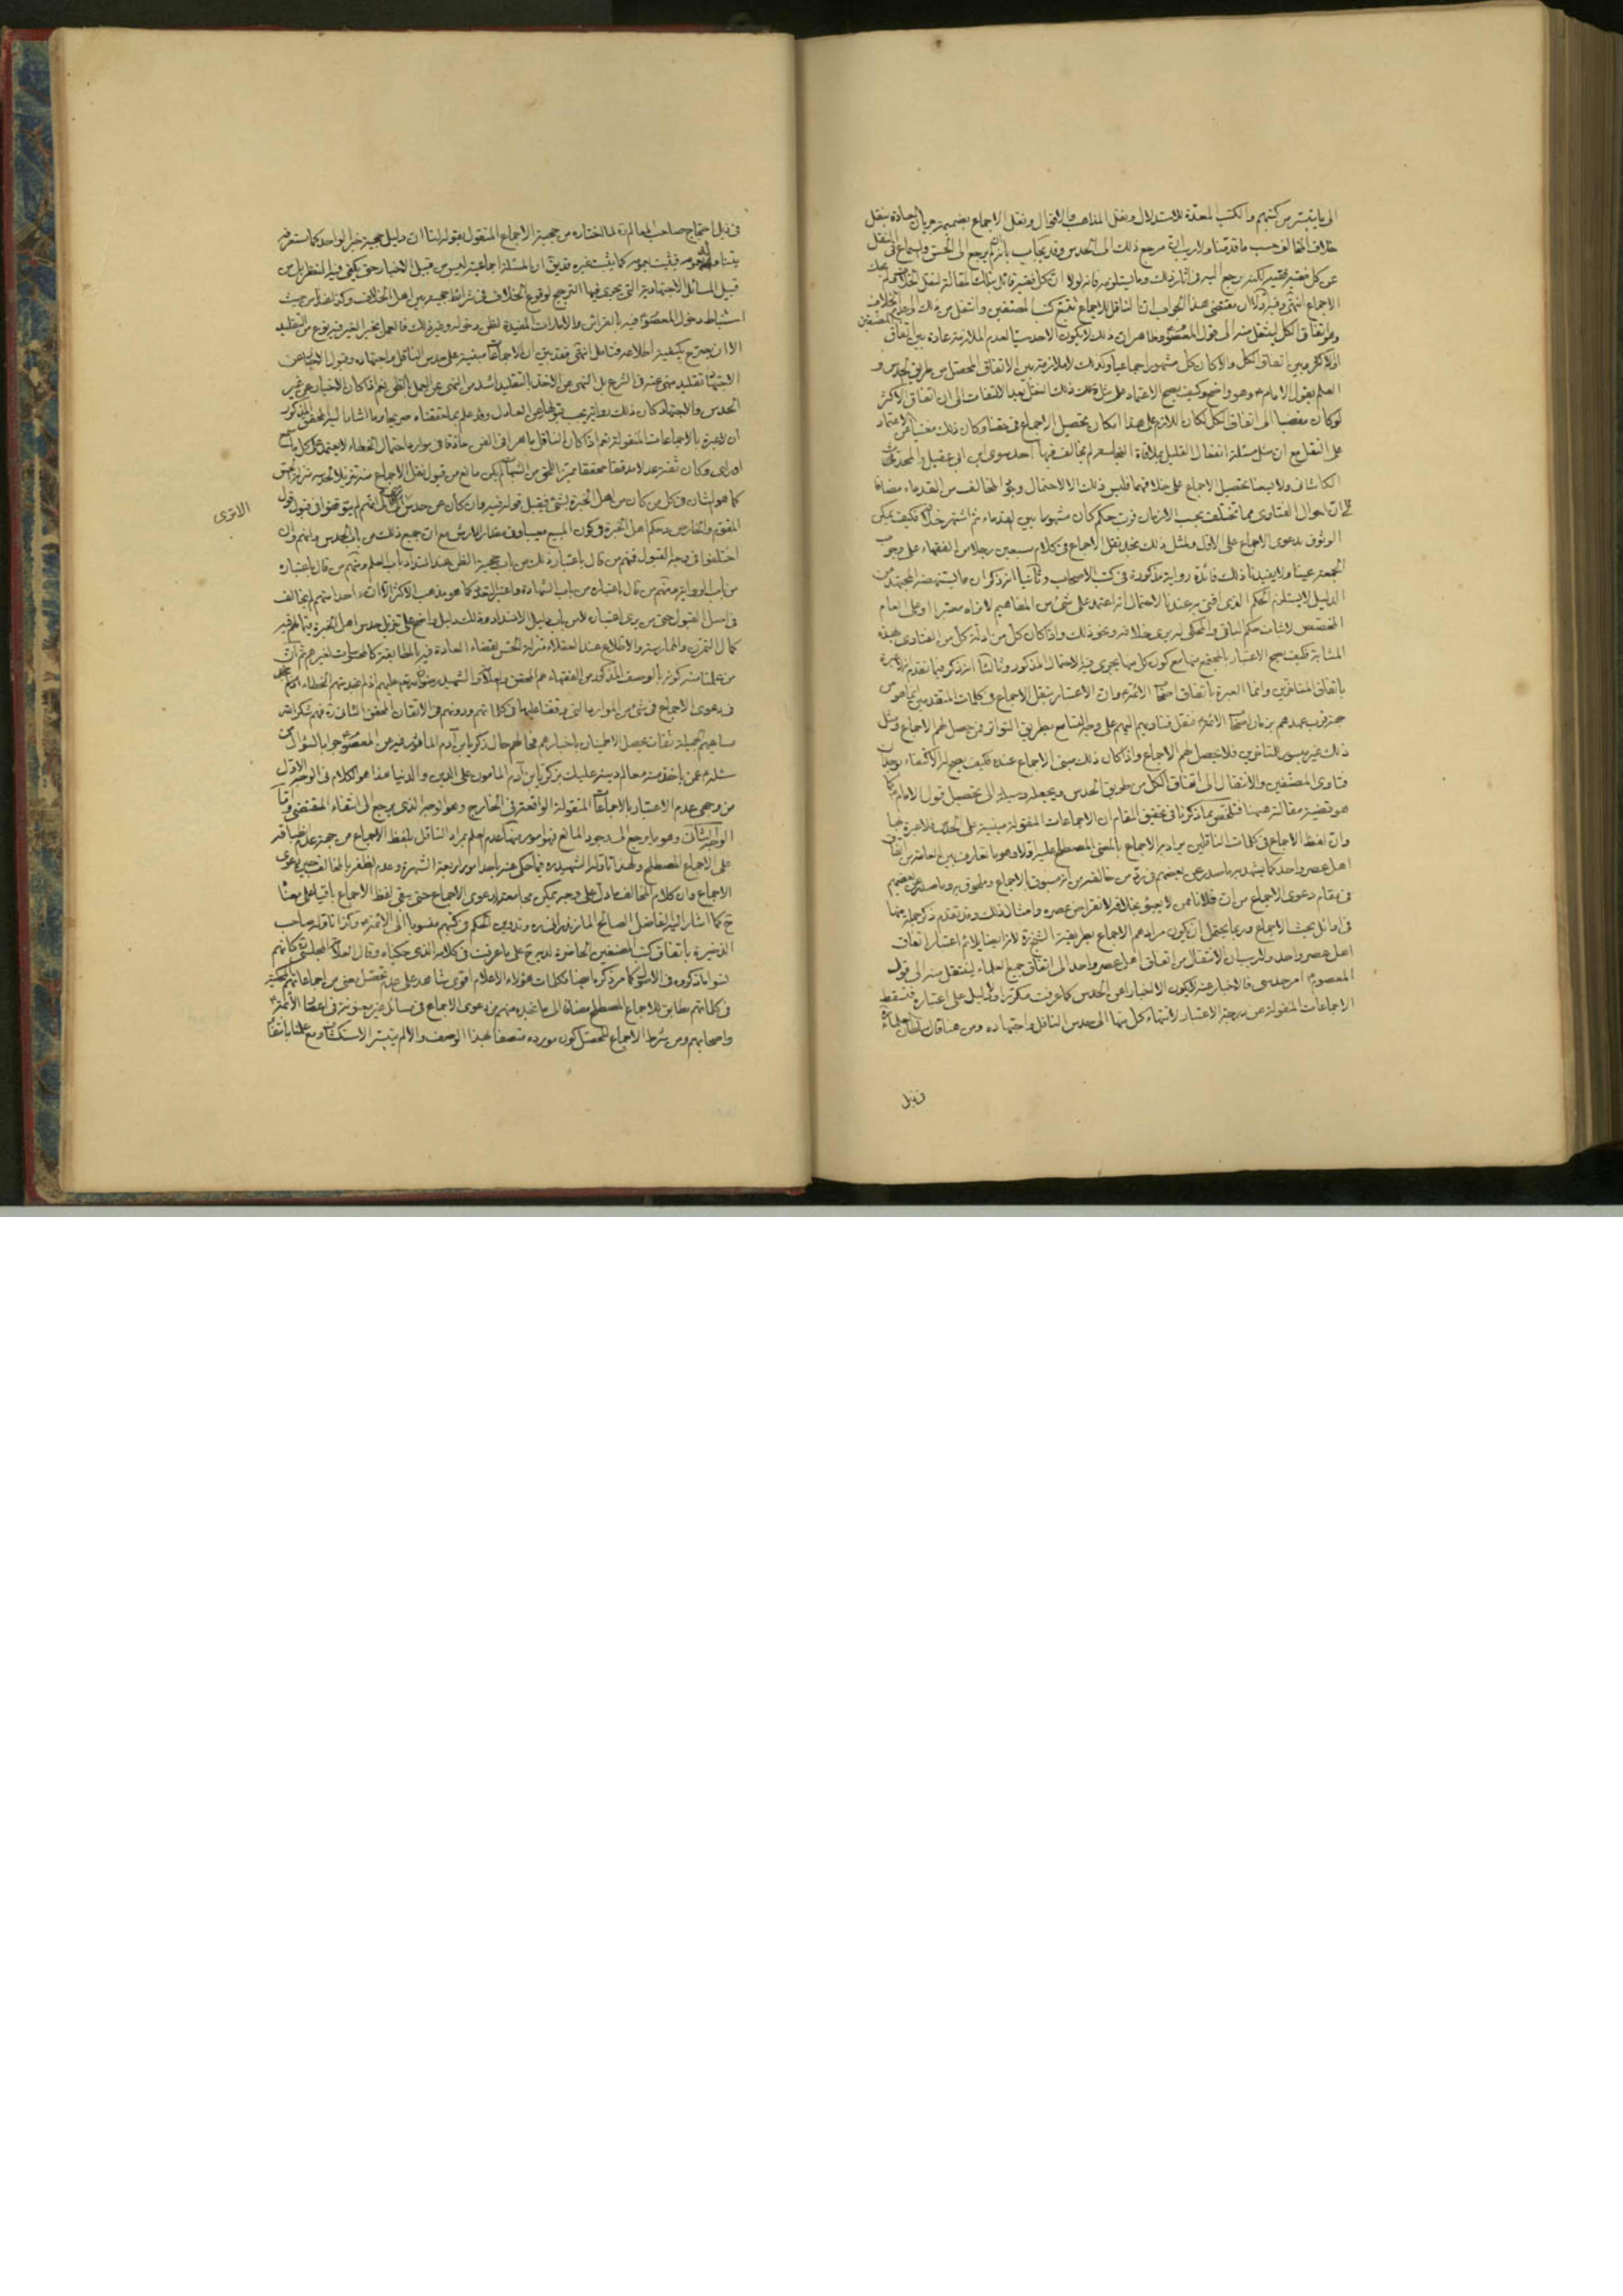 الى ما يتيسر من كتبهم والكتب المعدة للاستدلال ونقل المذاهب والاقوال ونقل الاجماع بضميمة جريان العادة بنقل
خلاف المخالف حسب ما قدمنا ولا ريب ان مرجع ذلك الى الحدس وقد يجاب بانه يرجع الى الحس والسماع في النقل
عن كل فقيه فقيه لكنه يرجع اليه في اثار ذلك وما يستلزمه فانه لولا ان كل فقيه قائل بتلك المقالة لنقل الخلاف
الاجماع انتهى وفيه اولا ان مقتضى هذا الجواب ان الناقل للاجماع تتبع كتب المصنفين وانتقل من ذلك وعدم الخلاف
وهو اتفاق الكل لينتقل منه الى قول المعصوم وظاهر ان ذلك لا يكون الا حدسيا لعدم الملازمة عادة بين اتفاق
الاكثر وبين اتفاق الكل والا كان كل مشهور اجماعيا وكذلك لا ملازمة بين الاتفاق المحصل من طريق الحدس و
العلم بقول الامام وهو واضح وكيف يصح الاعتماد على مثل ذلك النقل بعد الالتفات الى ان اتفاق الاكثر
لو كان مفضيا الى اتفاق الكل لكان اللازم على هذا امكان تحصيل الاجماع في حقنا وكان ذلك مغنيا عن الاعتماد
على النقل مع ان مثل مسئلة انفعال القليل بملاقاة النجاسة لم يخالف فيها احد سوى ابن ابي عقيل والمحدث
الكاشاني ولا يسعنا تحصيل الاجماع على خلافهما فليس ذلك الا لاحتمال وجود المخالف من القدماء مضافا
الى ان احوال الفتاوى مما تختلف بحسب الازمان فرب حكم كان مشهورا بين القدماء ثم اشتهر خلافه فكيف يمكن
الوثوق بدعوى الاجماع على الاول ولمثل ذلك نجد نقل الاجماع في كلام سبعين رجلا من الفقهاء على وجوب
الجمعة عينا ولا يفيدنا ذلك فائدة رواية مذكورة في كتب الاصحاب وثانيا انه ذكر ان ما يستنهضه المجتهد من
الدليل لا يستلزم الحكم الذي افتى به عندنا لاحتمال انه اعتمد على شيء من المفاهيم لا نراه معتبرا او على العام
المخصص لاثبات حكم الباقي والمحكى له يرى خلافه ونحو ذلك واذا كان كل من ادلة كل من الفتاوى بهذه
المثابة فكيف يصح الاعتبار بالمجتمع منها مع كون كل منها يجرى فيه الاحتمال المذكور وثالثا انه ذكر فيما تقدم انه لا عبرة
باتفاق المتاخرين وانما العبرة باتفاق اصحاب الائمة وان الاعتبار بنقل الاجماع في كلمات المتقدمين انما هو من
جهة قرب عهدهم بزمان اصحاب الائمة فنقل فتاويهم اليهم على وجه التسامع بطريق التواتر فمن حصل لهم الاجماع ومثل
ذلك غير ميسور للمتاخرين فلا يحصل لهم الاجماع واذا كان ذلك مبنى الاجماع عنده فكيف يصح له الاكتفاء بوجدان
فتاوى المصنفين والانتقال الى اتفاق الكل من طريق الحدس ويجعله وسيلة الى تحصيل قول الامام كما
هو قضية مقالته هيهنا فتلخص بما ذكرنا في تحقيق المقام ان الاجماعات المنقولة مبنية على الحدس فلا عبرة بها
وان لفظ الاجماع في كلمات الناقلين مراد به الاجماع بالمعنى المصطلح عليه اولا وهو ما تعارف بين العامة من اتفاق
اهل عصر واحد كما يشهد به ما صدر عن بعضهم في رد من خالفه من انه مسبوق بالاجماع وملحوق به وما صدر عن بعضهم
في مقام دعوى الاجماع من ان فلانا ممن لا يعبؤ بخلافه لانقراض عصره وامثال ذلك وقد تقدم ذكر جملة منها
في اوائل بحث الاجماع وربما يحتمل ان يكون مرادهم الاجماع بطريقة الشيخ لانه ايضا يلائم اعتبار اتفاق
اهل عصر واحد ولا ريب ان الانتقال من اتفاق اهل عصر واحد الى اتفاق جميع العلماء لينتقل منه الى قول
المعصوم امر حدسي فالاخبار عنه لا يكون الا اخبارا عن الحدس كما عرفت مكررا ولا دليل على اعتباره فتسقط
الاجماعات المنقولة عن درجة الاعتبار لانتهاء كل منها الى حدس الناقل واجتهاده ومن هنا قال سلطان العلماء
في ذيل
في ذيل احتجاج صاحب المعالم لما اختاره من حجية الاجماع المنقول بقوله لنا ان دليل حجية خبر الواحد كما ستعرفه
يتناوله بعمومه فيثبت به كما يثبت غيره قد يقال ان المسئلة اجماعية ليس من قبيل الاخبار حتى يكفي فيه النظر بل من
قبيل المسائل الاجتهادية التي يجرى فيها الترجيح لوقوع الخلاف في شرائط حجيته بين اهل الخلاف وكذا عندنا من حيث
استنباط دخول المعصوم فيه بالقرائن والامارات المفيدة لظن دخوله وغير ذلك فالعمل بخبر الغير فيه نوع من التقليد
الا ان يصرح بكيفية اطلاعه فتامل انتهى فقد بين ان الاجماعات مبنية على حدس الناقل واجتهاده وقبول الاخبار عن
الاجتهاد تقليد منهى عنه في الشرع بل النهى عن الاخذ بالتقليد اشد من النهى عن العمل بالظن نعم اذا كان الاخبار عن غير
الحدس والاجتهاد كان ذلك رواية يجب قبولها من العادل وقد علم بما حققناه صريحا وما اشار اليه المحقق المذكور
ان لا عبرة بالاجماعات المنقولة نعم اذا كان الناقل ماهرا في الفن حاذقا في موارد احتمال الخطاء لا يعتمد على كل ما سمع
او راى وكان ثقة عدلا مدققا محققا مميزا للحق من الشبهات لم يكن مانع من قبول نقله الاجماع منه تنزيلا لحدسه منزلة الحس
كما هو الشان في كل من كان من اهل الخبرة بشئ فيقبل قوله فيه وان كان عن حدس الا ترى انهم لم يتوقفوا في قبول قول
المقوم والخارص وحكم اهل الخبرة في كون المبيع معيبا وفي مقدار الارش مع ان جميع ذلك من باب الحدس وانهم وان
اختلفوا في وجه القبول فمنهم من قال باعتبار ذلك من باب حجية الظن عند انسداد باب العلم ومنهم من قال باعتباره
من باب الرواية ومنهم من قال باعتباره من باب الشهادة واعتبر التعدد كما هو مذهب الاكثر الا ان احدا منهم لم يخالف
في اصل القبول حتى من يرى اعتباره لا من باب دليل الانسداد وذلك دليل واضح على تنزيل حدس اهل الخبرة بما لهم فيه
كمال التمرن والممارسة والاطلاع عند العقلاء منزلة الحس بقضاء العادة فيه بالمطابقة كالمحسوسات لغيرهم ثم ان
من علمنا منه كونه بالوصف المذكور من الفقهاء هم المحقق والعلامة والشهيد رضوان الله عليهم اذ لم نجد منهم الخطاء
في دعوى الاجماع في شئ من الموارد التي وقفنا عليها في كلماتهم ودونهم في الاتقان المحقق الثاني فهم شكر الله
مساعيهم الجميلة ثقات يحصل الاطمينان باخبارهم فحالهم حال زكريا بن آدم الماثور فيه عن المعصوم جوابا لسؤال من
سئله عمن ياخذ منه معالم دينه عليك بزكريا بن آدم المامون على الدين والدنيا هذا هو الكلام في الوجه الاول
من وجهي عدم الاعتبار بالاجماعات المنقولة الواقعة في الخارج وهو الوجه الذي يرجع الى انتفاء المقتضى واما
الوجه الثاني وهو ما يرجع الى وجود المانع فهو امور منها عدم العلم بمراد الناقل بلفظ الاجماع من جهة عدم انطباقه
على الاجماع المصطلح ولهذا تاوله الشهيد فيما حكى عنه باحد امور اربعة الشهرة وعدم الظفر بالمخالف حين دعوى
الاجماع وان كلام المخالف مأول على وجه يمكن مجامعته لدعوى الاجماع حتى يبقى لفظ الاجماع باقيا على معناه
كما اشار اليه الفاضل الصالح المازندراني وتدوين الحكم في كتبهم منسوبا الى الائمة وكذا تاوله صاحب
الذخيرة باتفاق كتب المصنفين الحاضرة لديه على ما عرفت في كلامه الذي حكيناه وقال العلامة المجلسي كانهم
نسوا ما ذكروه في الاصول كما مر ذكره ايضا فكلمات هؤلاء الاعلام اقوى شاهد على عدم تحصل معنى من اجماعاتهم المحكية
في كلماتهم مطابق للاجماع المصطلح مضافا الى ما نجده منهم من دعوى الاجماع في مسائل غير معنونة في اعصار الائمة
واصحابهم ومن شرط الاجماع المحصل كون مورده متصفا بهذا الوصف والا لم يتيسر الاستكشاف ومع علمنا بانتفاء